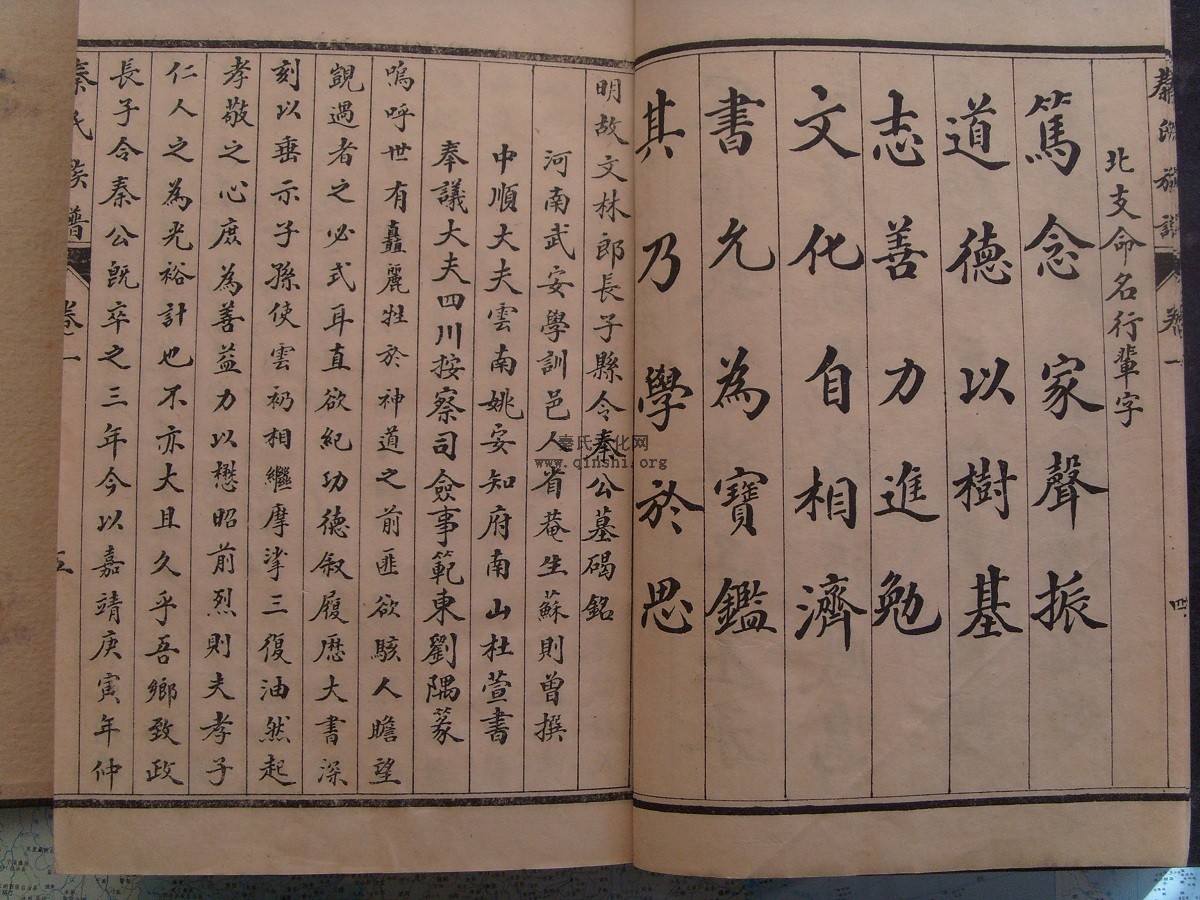 秦氏族譜 卷一 四
北支命名行輩字
篤念家聲振
道德以樹基
志善力進勉
文化自相濟
書允為寶鑑
其乃學於思
明故文林郎長子縣令秦公墓碣銘
河南武安學訓邑人省菴生蘇則曾撰
中順大夫雲南姚安知府南山杜萱書
奉議大夫四川按察司僉事範東劉隅篆
嗚呼世有矗麗牲於神道之前匪欲駭人瞻望
覬遇者之必式耳直欲紀功德叙履歷大書深
刻以垂示子孫使雲礽相繼摩挲三復油然起
孝敬之心庶為善益力以懋昭前烈則夫孝子
仁人之為光裕計也不亦大且久乎吾鄉致政
長子令秦公既卒之三年今以嘉靖庚寅年仲
秦氏族譜 卷一 五
秦氏文化网
www.qinshi.org